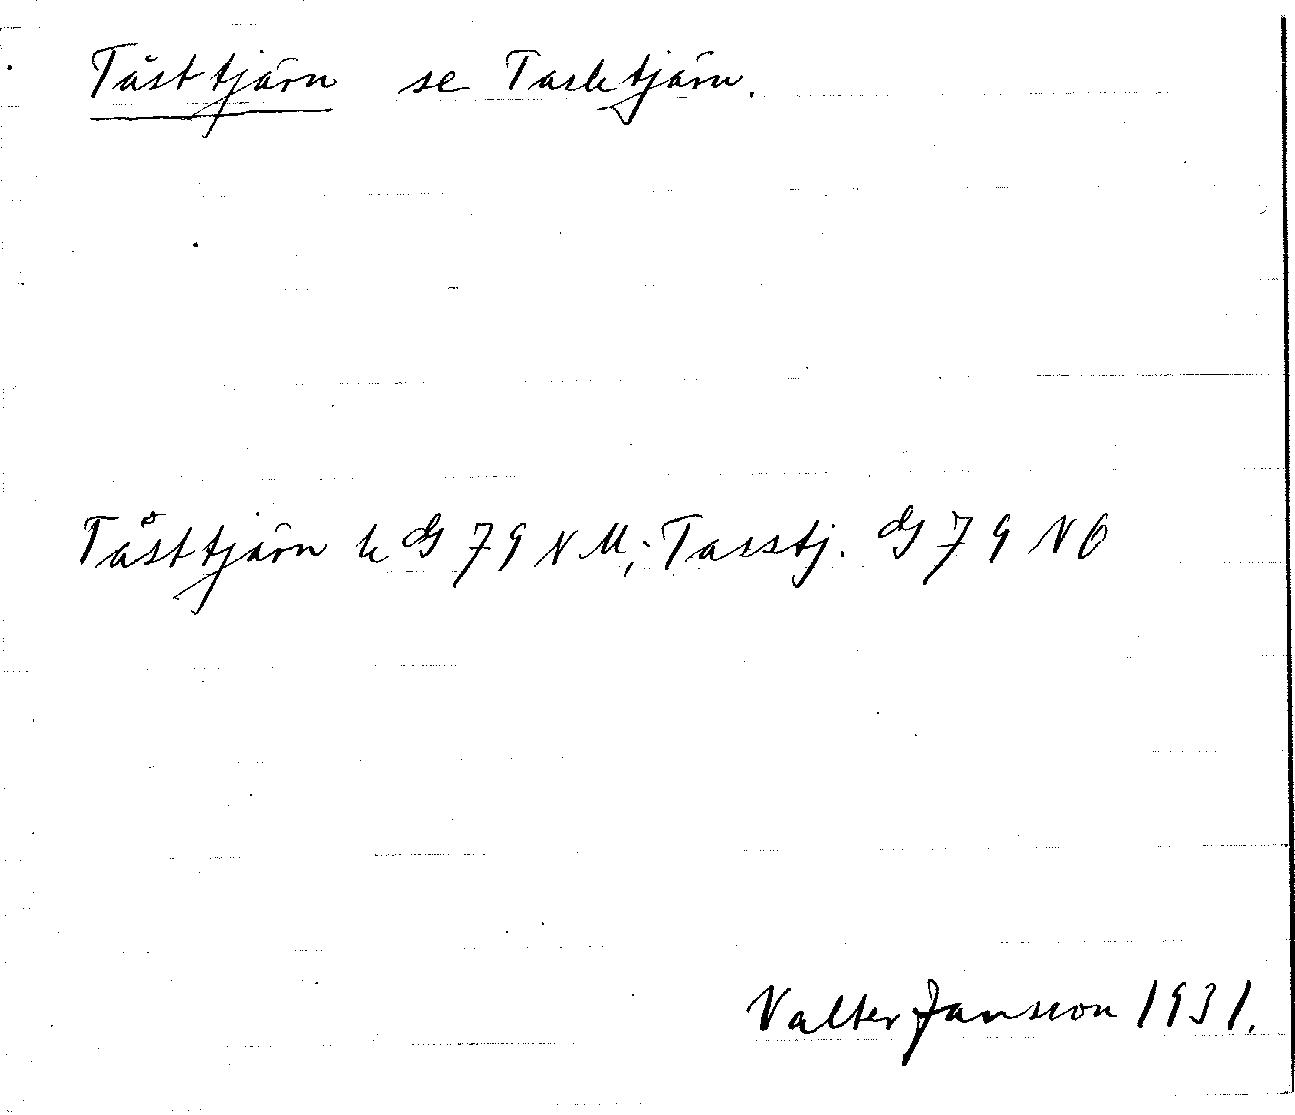 Tåsttjärn se Tasktjärn.
Tåsttjärn h GS 79 NV; Tasstj. GS 79 NO
Valter Jansson 1931.